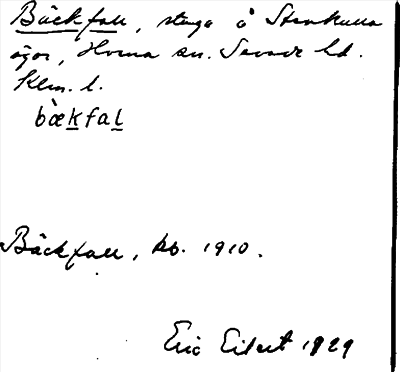 Bäckfall, stuga å Stenkulla
ägor, Horna sn. Sevede hd.
Klm. l.
bæ̀kfal
Bäckfall, kb. 1910.
Eric Eilert 1929